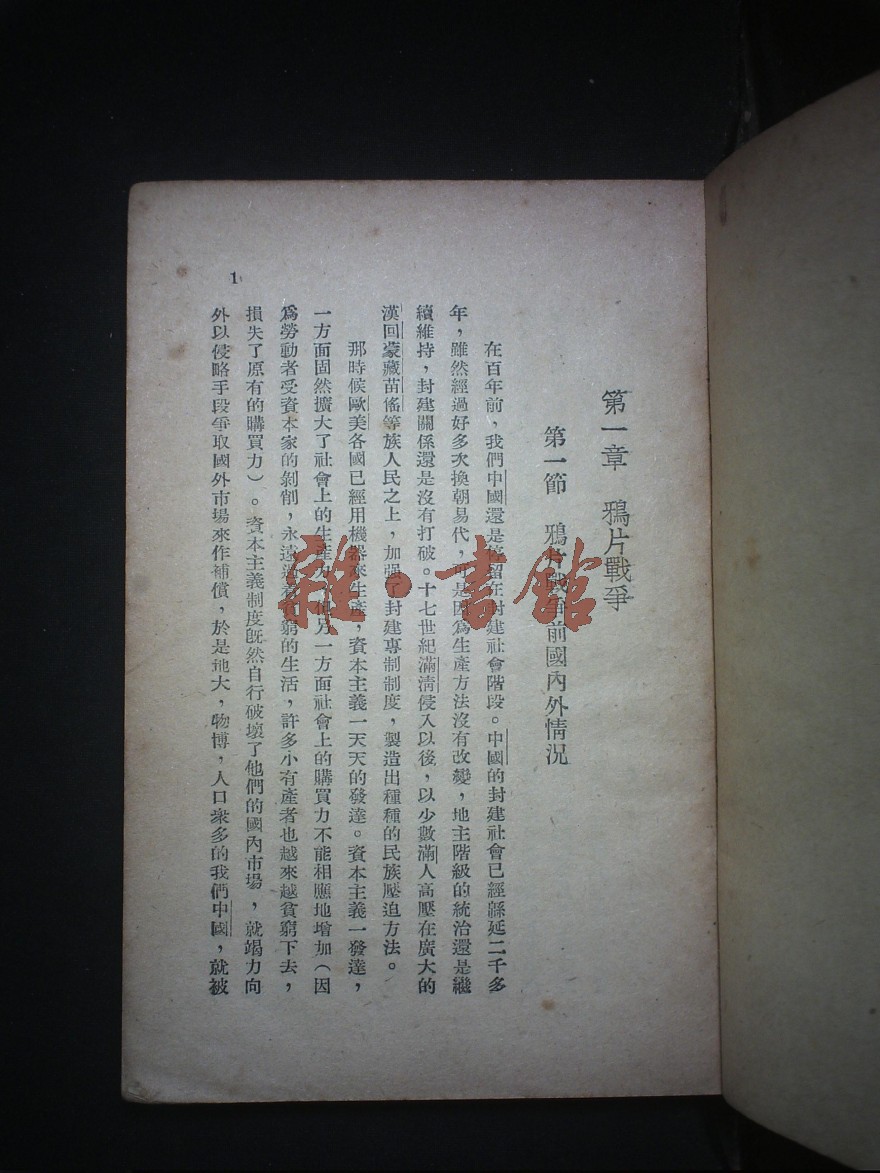 第一章　鴉片戰爭
第一節　鴉片戰爭前國內外情況
在百年前，我們中國還是停留在封建社會階段。中國的封建社會已經緜延二千多
年，雖然經過好多次換朝易代，可是因爲生產方法沒有改變，地主階級的統治還是繼
續維持，封建關係還是沒有打破。十七世紀滿淸侵入以後，以少數滿人高壓在廣大的
漢回蒙藏苗傜等族人民之上，加强了封建專制制度，製造出種種的民族壓迫方法。
那時候歐美各國已經用機器來生產，資本主義一天天的發達。資本主義一發達，
一方面固然擴大了社會上的生產力，他另一方面社會上的購買力不能相應地增加（因
爲勞動者受資本家的剝削，永遠過着貧窮的生活，許多小有產者也越來越貧窮下去，
損失了原有的購買力）。資本主義制度旣然自行破壞了他們的國內市場，就竭力向
外以侵略手段爭取國外市場來作補償，於是地大，物博，人口衆多的我們中國，就被
1
雜·書館